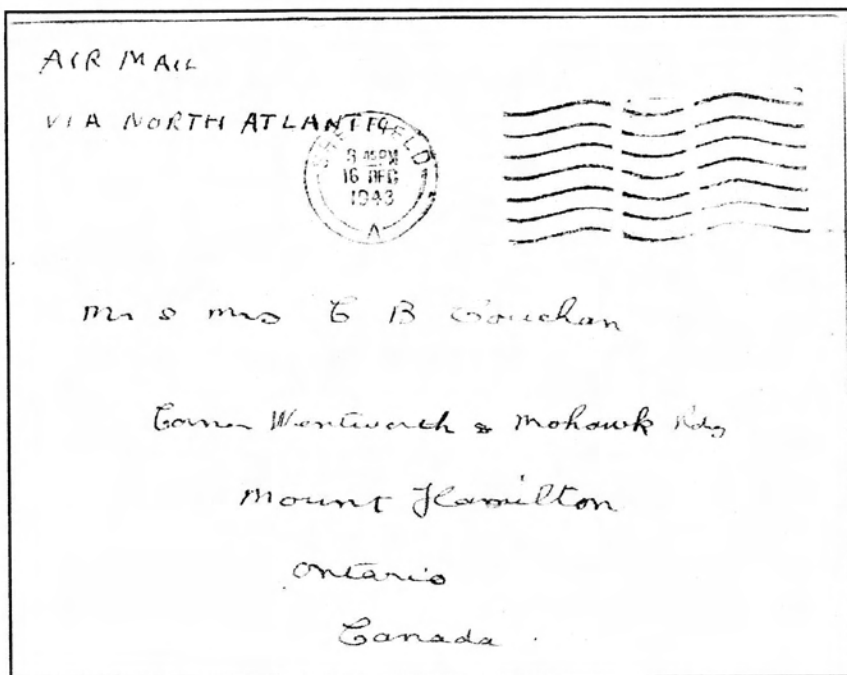 AIR MAIL
VIA NORTH ATLANTIC
SHEFFIELD
45PM
16 DEC
1943
A
Mr & Mrs C B
Corner Wentworth & Mohawk Rds
Mount Hamilton
Ontario
Canada.